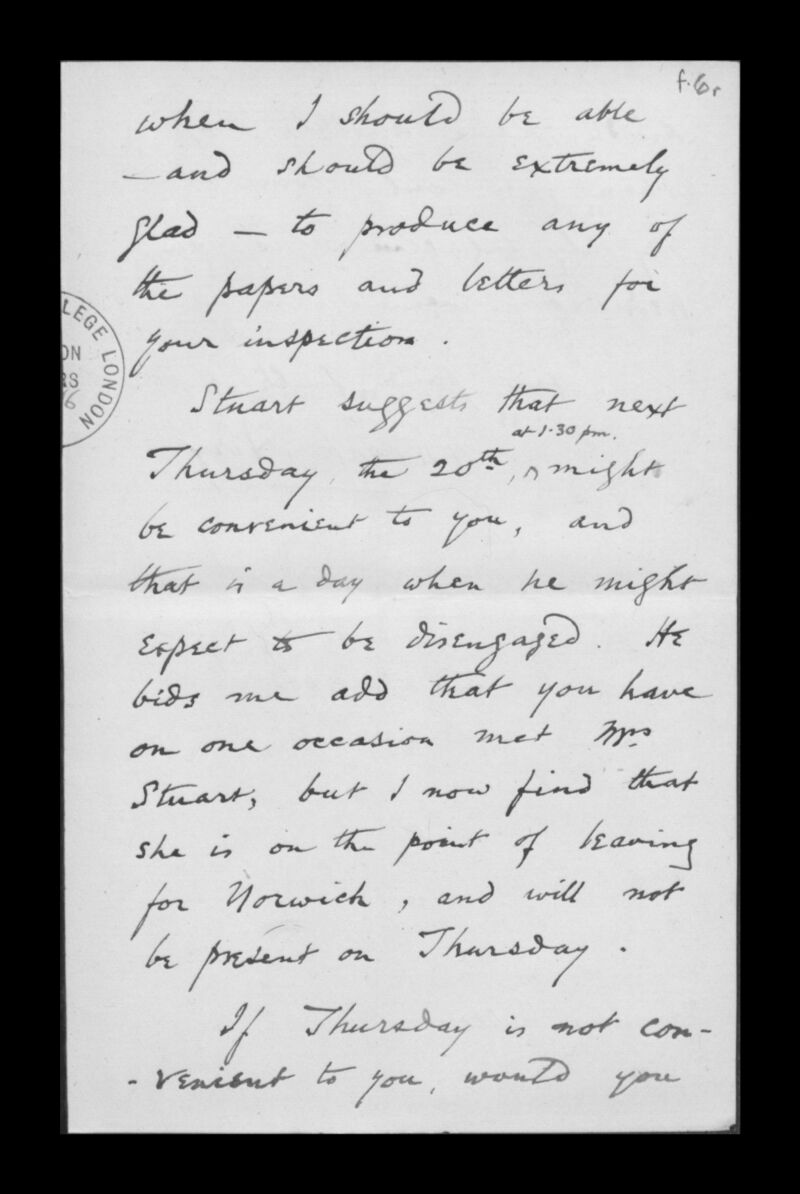 f.6r
when I should be able
— and should be extremely
glad — to produce any of
the papers and letters for
your inspection.
LEGE LONDON
ON
&S
Stuart suggests that next
at 1.30 pm.
Thursday, the 20th, ^ might
be convenient to you, and
that is a day when he might
expect to be disengaged. He
bids me add that you have
on one occasion met Mrs
Stuart, but I now find that
she is on the point of leaving
for Norwich, and will not
be present on Thursday.
If Thursday is not con-
-venient to you, would you